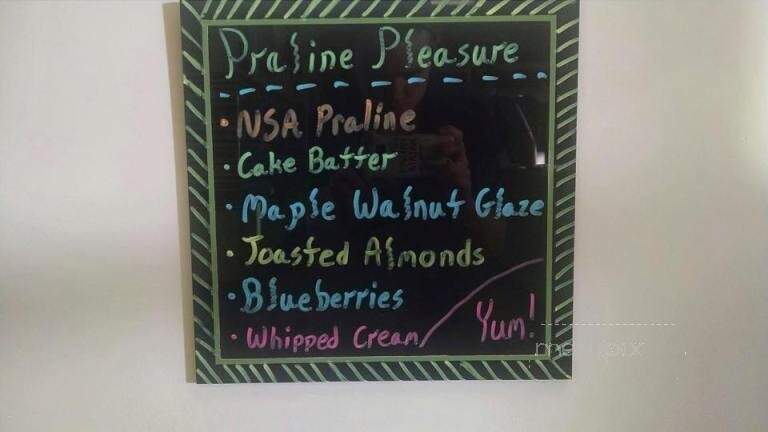 Praline Pleasure
• NSA Praline
• Cake Batter
• Maple Walnut Glaze
• Toasted Almonds
• Blueberries
• Whipped Cream
Yum!